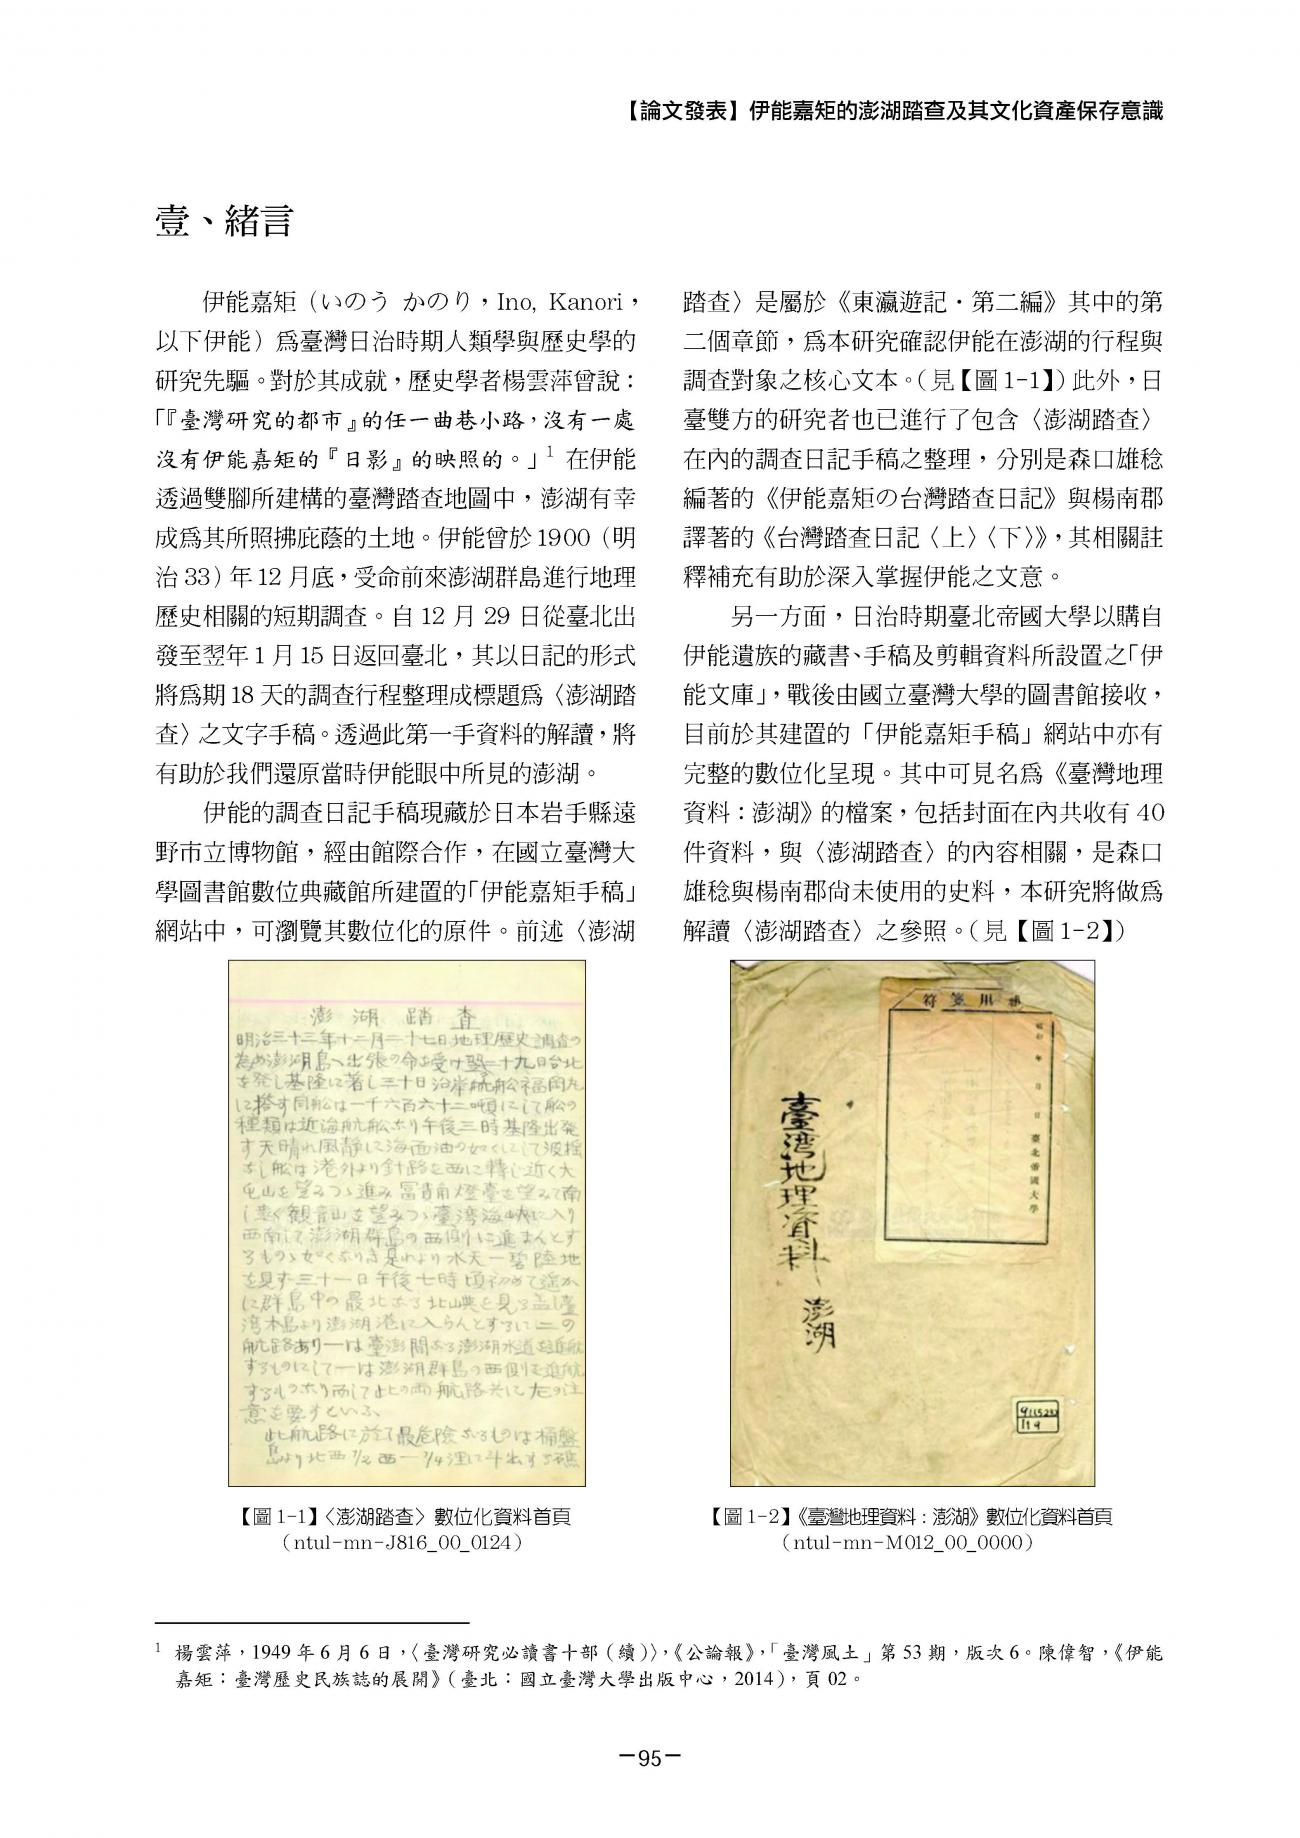 【論文發表】伊能嘉矩的澎湖踏查及其文化資產保存意識
壹、緒言
伊能嘉矩（いのう かのり，Ino, Kanori，
以下伊能）為臺灣日治時期人類學與歷史學的
研究先驅。對於其成就，歷史學者楊雲萍曾說：
「『臺灣研究的都市』的任一曲巷小路，沒有一處
沒有伊能嘉矩的『日影』的映照的。」1 在伊能
透過雙腳所建構的臺灣踏查地圖中，澎湖有幸
成為其所照拂庇蔭的土地。伊能曾於 1900（明
治 33）年 12 月底，受命前來澎湖群島進行地理
歷史相關的短期調查。自 12 月 29 日從臺北出
發至翌年 1 月 15 日返回臺北，其以日記的形式
將為期 18 天的調查行程整理成標題為〈澎湖踏
查〉之文字手稿。透過此第一手資料的解讀，將
有助於我們還原當時伊能眼中所見的澎湖。
伊能的調查日記手稿現藏於日本岩手縣遠
野市立博物館，經由館際合作，在國立臺灣大
學圖書館數位典藏館所建置的「伊能嘉矩手稿」
網站中，可瀏覽其數位化的原件。前述〈澎湖
踏查〉是屬於《東瀛遊記．第二編》其中的第
二個章節，為本研究確認伊能在澎湖的行程與
調查對象之核心文本。（見【圖 1-1】）此外，日
臺雙方的研究者也已進行了包含〈澎湖踏查〉
在內的調查日記手稿之整理，分別是森口雄稔
編著的《伊能嘉矩の台灣踏查日記》與楊南郡
譯著的《台灣踏查日記〈上〉〈下〉》，其相關註
釋補充有助於深入掌握伊能之文意。
另一方面，日治時期臺北帝國大學以購自
伊能遺族的藏書、手稿及剪輯資料所設置之「伊
能文庫」，戰後由國立臺灣大學的圖書館接收，
目前於其建置的「伊能嘉矩手稿」網站中亦有
完整的數位化呈現。其中可見名為《臺灣地理
資料：澎湖》的檔案，包括封面在內共收有 40
件資料，與〈澎湖踏查〉的內容相關，是森口
雄稔與楊南郡尚未使用的史料，本研究將做為
解讀〈澎湖踏查〉之參照。（見【圖 1-2】）
澎湖踏査
明治三十三年十二月二十七日地理歴史調査の
為め澎湖島へ出張の命を受け翌二十九日台北
を発し基隆に着し三十日沿岸航船福岡丸
に搭す同船は一千六百六十二噸にして船の
種類は近海航船なり午後三時基隆出発
す天晴れ風静に海面油の如くにして波揺
なし船は港外より針路を西に轉じ近く大
屯山を望みつゝ進み冨貴角燈臺を望みて南
し遠く観音山を望みつゝ臺湾海峡に入り
西南して澎湖群島の西側に進まんとす
るものゝ如くなりき是れより水天一碧陸地
を見ず三十一日午後七時頃初めて遥か
に群島中の最北なる北嶼を見る蓋し臺
湾本島より澎湖港に入らんとするに二の
航路あり一は臺澎間なる澎湖水道を進航
するものにして一は澎湖群島の西側を進航
するものなり而して此の両航路共に尤の注
意を要すといふ
此航路に於て最危険なるものは桶盤
島より北西1/2西一3/4浬に斗出する礁
臺灣地理資料 澎湖
用箋符
年 月 日
臺北帝國大學
【圖 1-1】〈澎湖踏查〉數位化資料首頁
（ntul-mn-J816_00_0124）
【圖 1-2】《臺灣地理資料：澎湖》數位化資料首頁
（ntul-mn-M012_00_0000）
1 楊雲萍，1949 年 6 月 6 日，〈臺灣研究必讀書十部（續）〉，《公論報》，「臺灣風土」第 53 期，版次 6。陳偉智，《伊能
嘉矩：臺灣歷史民族誌的展開》（臺北：國立臺灣大學出版中心，2014），頁 02。
－95－